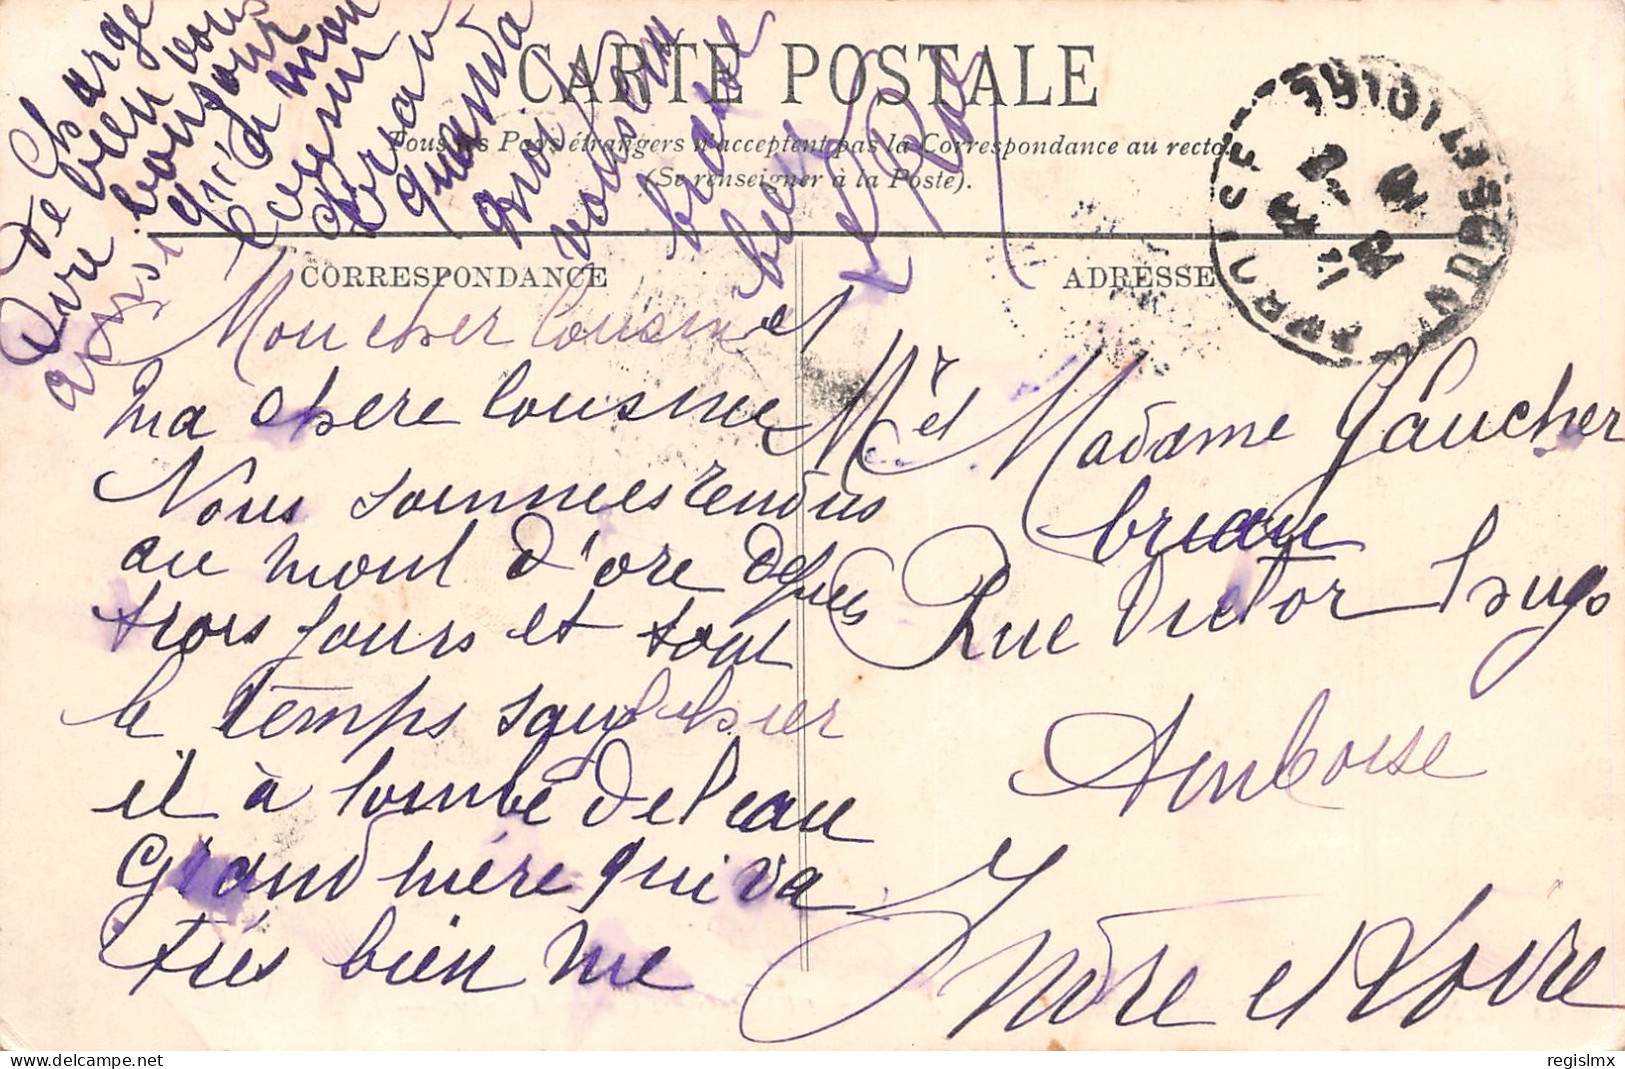 CARTE POSTALE
Tous les Pays étrangers n'acceptent pas la Correspondance au recto
(Se renseigner à la Poste).
CORRESPONDANCE
ADRESSE
Mon cher Cousin et
ma chere Cousine
Nous sommes rendus
au mont d'ore depuis
trois jours et tout
le temps sauf hier
il à tombé de l'eau
Grand mére qui va
trés bien me
Charge
de bien vous
dire bonjour
ainsi qu'à mon
Cousin
quand à
bien
Mr et Madame Gaucher
briau
Rue Victor Hugo
Amboise
Indre et Loire
regislmx